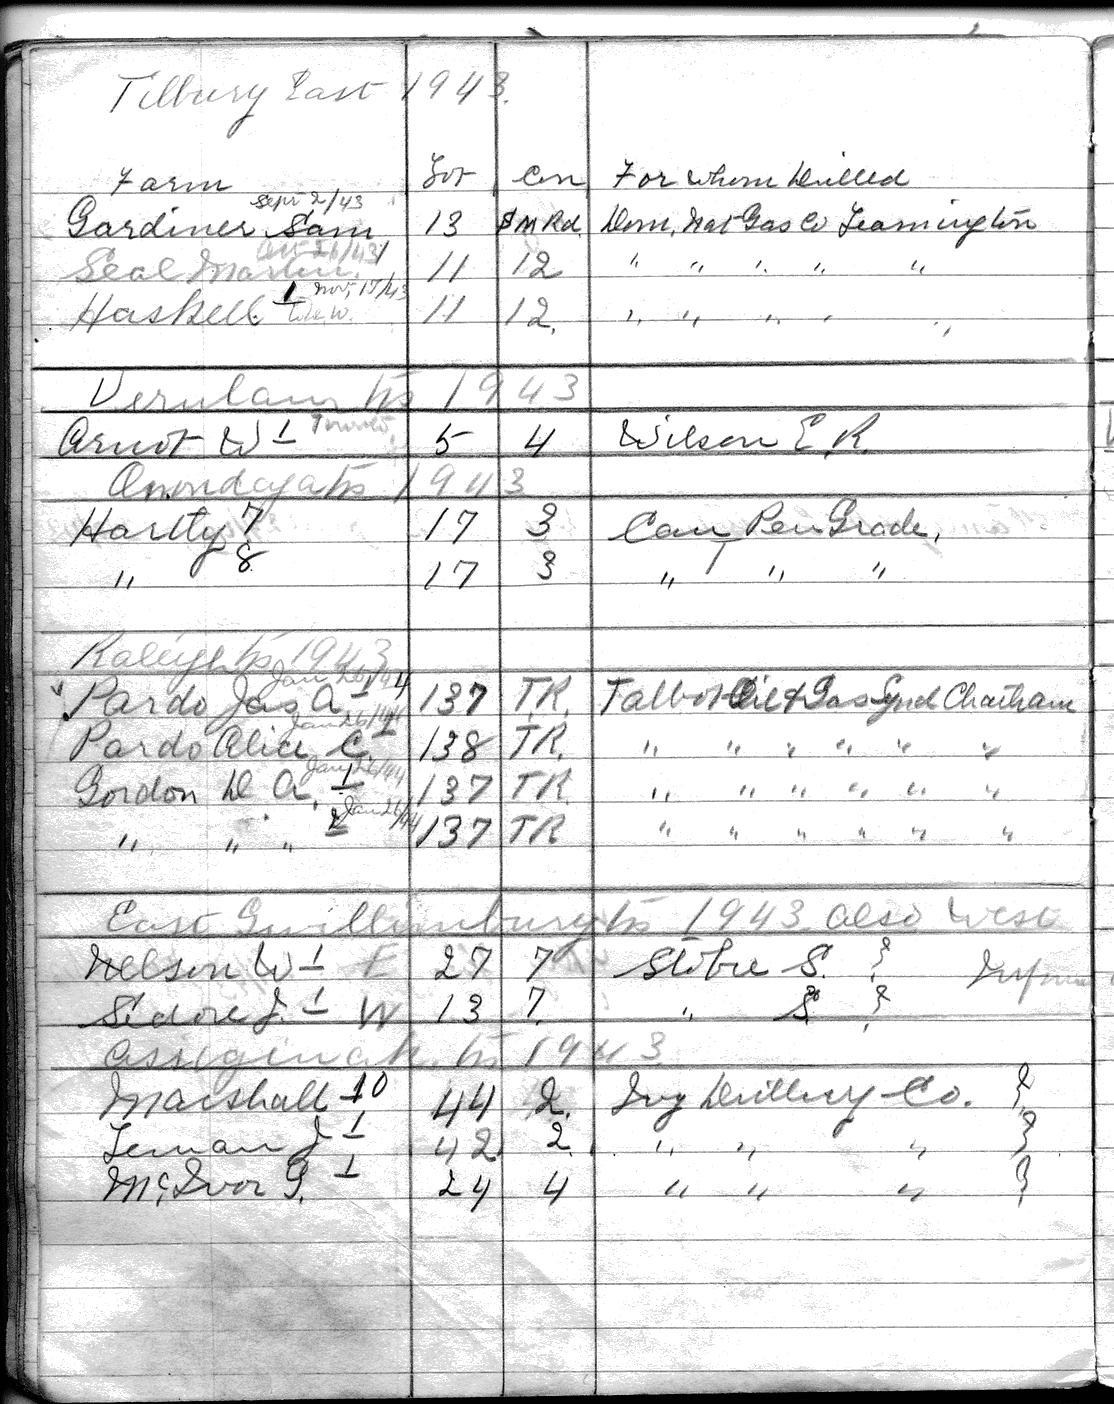 Tilbury East 1943.
Farm Lot Con For Whom Drilled
Sept 2/43
Gardiner Sam 13 M Rd. Dom. Nat Gas Co Leamington
Oct 26/43
Seal Martin 1 11 12 " " " " "
Nov, 15/43
Haskell 1 11 12. " " " " "
Verulam Tp 1943
Arnot W 1 Toronto 5 4 Wilson E R.
Onondaga Tp 1943
Hartly 7 17 3 Can Pen Grade,
" 8 17 3 " " "
Raleigh Tp 1943
Jan 26/44
Pardo Jas A 1 137 T.R. Talbot Oil & Gas Synd Chatham
Jan 26/44
Pardo Alice C. 1 138 T.R. " " " " " "
Jan 26/44
Gordon D A. 1 137 T.R. " " " " " "
Jan 26/44
" " " 2 137 TR " " " " " "
East Gwillimbury Tp 1943 also West
Nelson W 1 E 27 7 Stobie S. }
Sedore J. 1 W 13 7 " S }
Assiginack Tp 1943
Marshall 10 44 2. Ivy Drilling Co. }
Leman J 1 42 2. " " " }
McIvor G. 1 24 4 " " " }